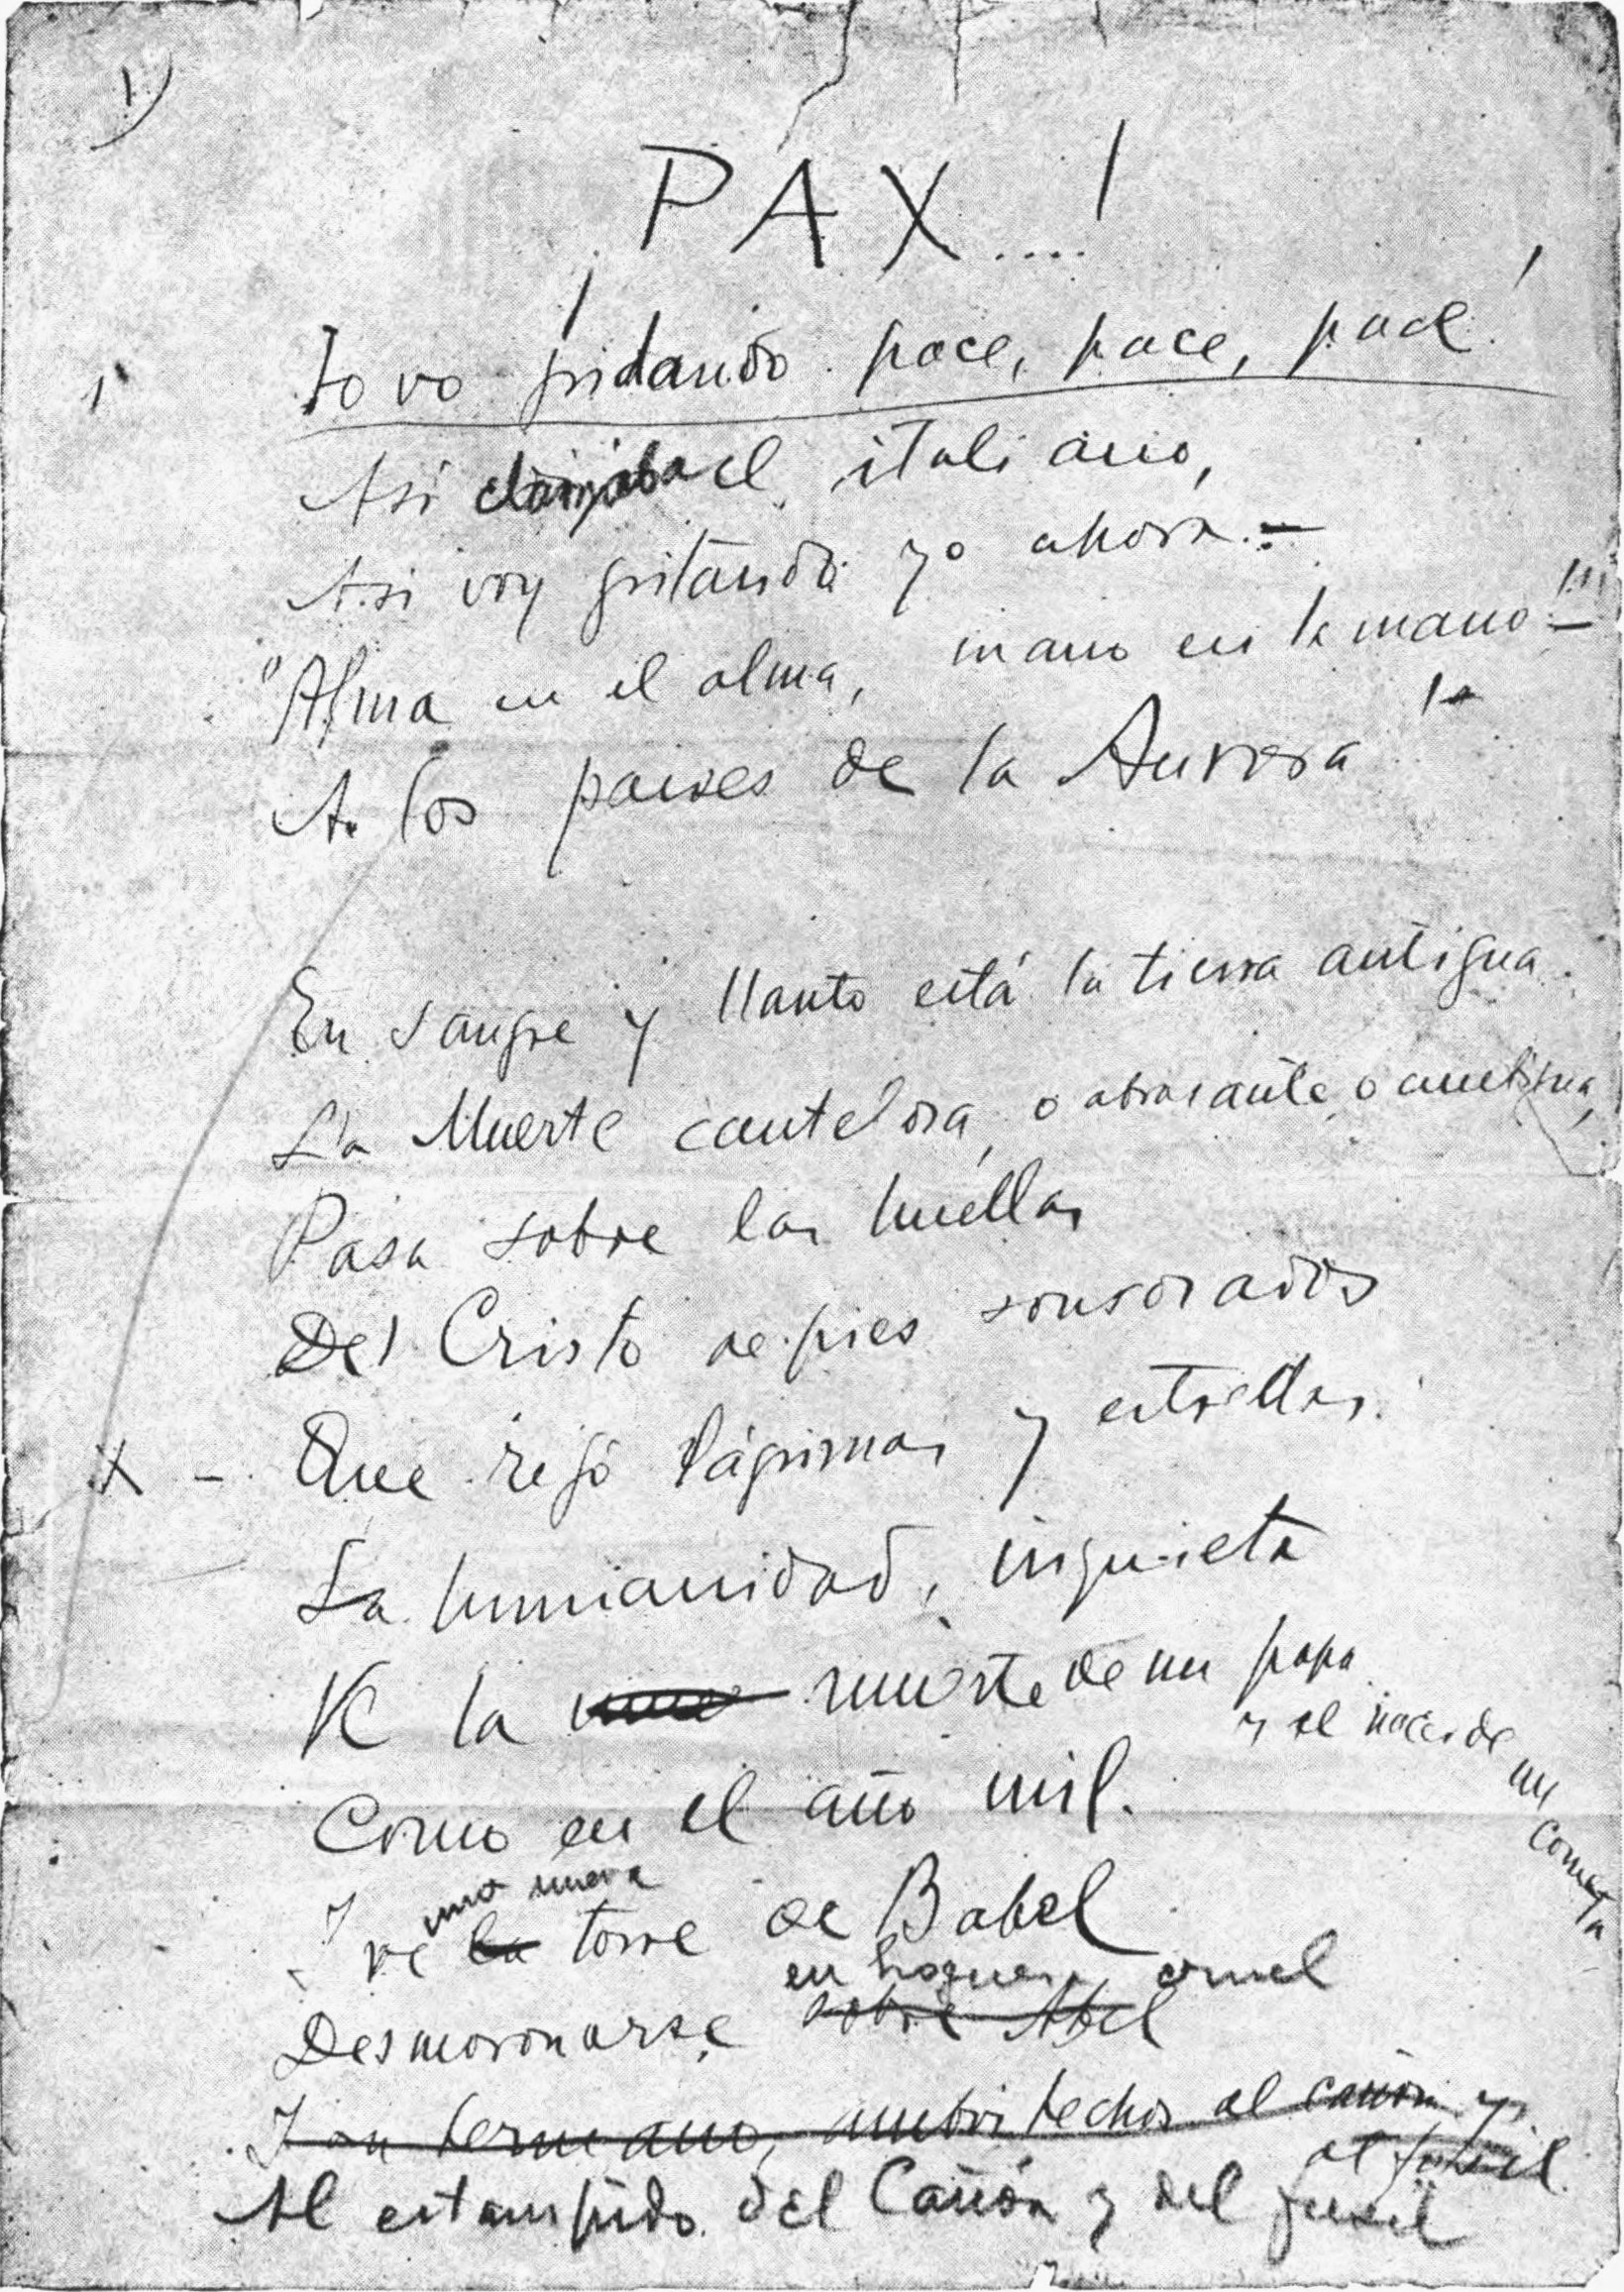 1)
PAX....!
¡Io vo gridando pace, pace, pace!
Asi clamaba el italiano,
Asi voy gritando yo ahora.-
"Alma en el alma, mano en la mano" -
A los paises de la Aurora!-
En sangre y llanto está la tierra antigua.
La Muerte cautelosa, o abrasante, o ambigua,
Pasa sobre las huellas
Del Cristo de pies sonrosados
X - Que regó lágrimas y estrellas.
La humanidad, inquieta
Ve la muerte de un papa
y el nacer de un cometa
Como en el año mil.
una nueva
Y ve la torre de Babel
en hoguera cruel
Desmoronarse sobre Abel
Y su hermano, ambos hechos al cañón y
al fusil.
Al estampido del Cañón y del fusil